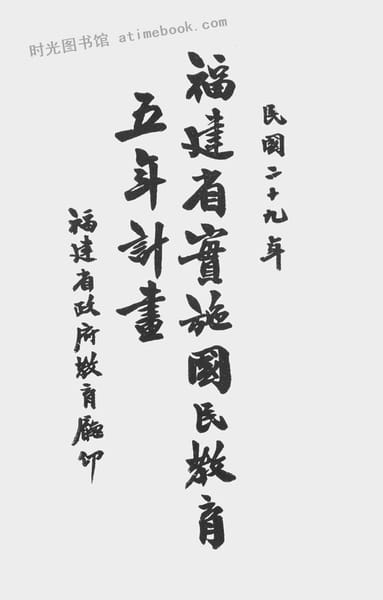 时光图书馆 atimebook.com
民國二十九年
福建省實施國民教育
五年計畫
福建省政府教育廳印